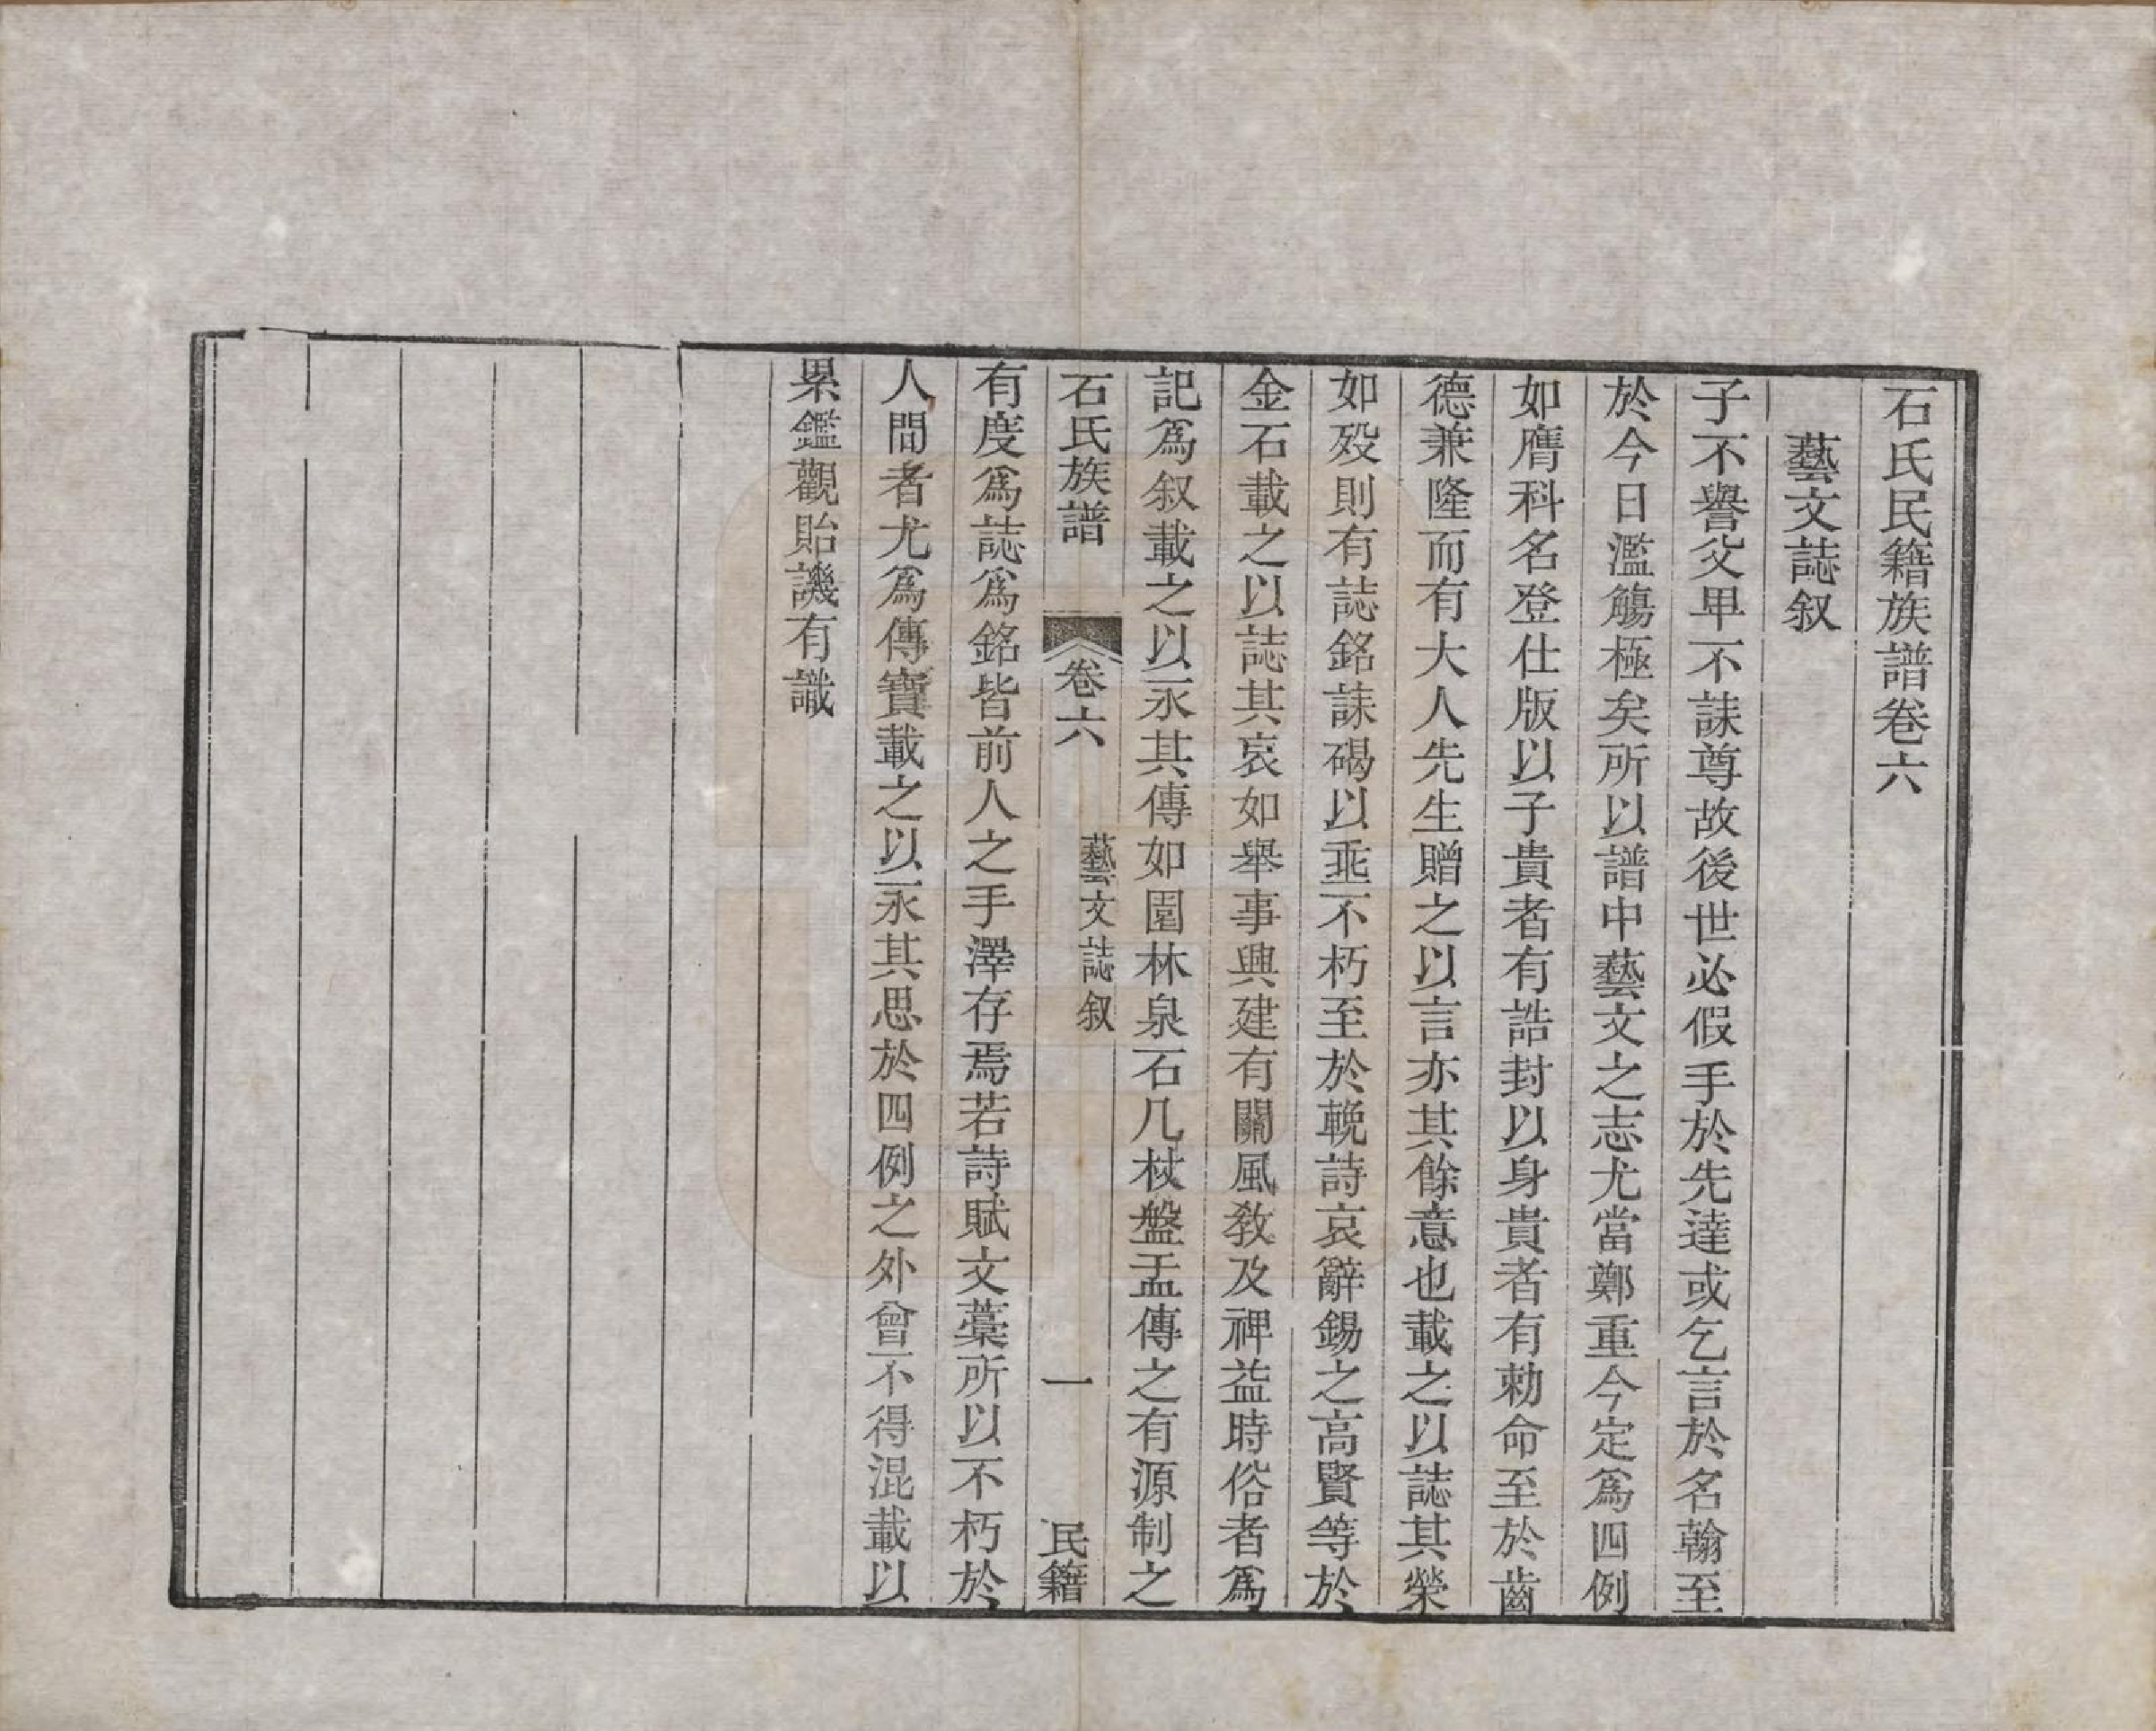 石氏民籍族譜卷六
藝文誌叙
子不譽父卑不誄尊故後世必假手於先達或乞言於名翰至
於今日濫觴極矣所以譜中藝文之志尤當鄭重今定爲四例
如膺科名登仕版以子貴者有誥封以身貴者有勅命至於齒
德兼隆而有大人先生贈之以言亦其餘意也載之以誌其榮
如歿則有誌銘誄碣以乖不朽至於輓詩哀辭錫之高賢等於
金石載之以誌其哀如舉事興建有關風敎及裨益時俗者爲
記爲叙載之以永其傳如園林泉石几杖盤盂傳之有源制之
石氏族譜
卷六
藝文誌叙
一
民籍
有度爲誌爲銘皆前人之手澤存焉若詩賦文藁所以不朽於
人間者尤爲傳寶載之以永其思於四例之外曾不得混載以
累鑑觀貽譏有識